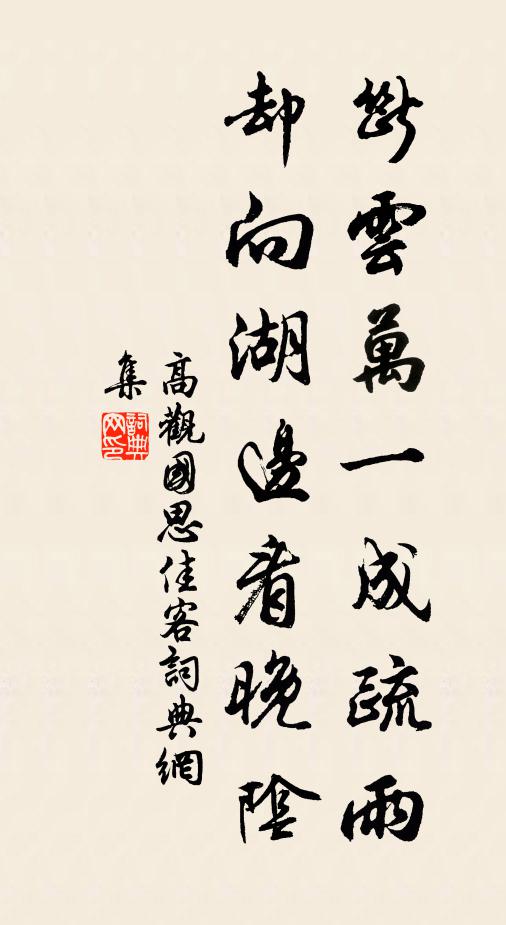 斷雲萬一成疏雨
却向湖邊看晚陰
高觀國思佳客詞典網
集
詞典
网印